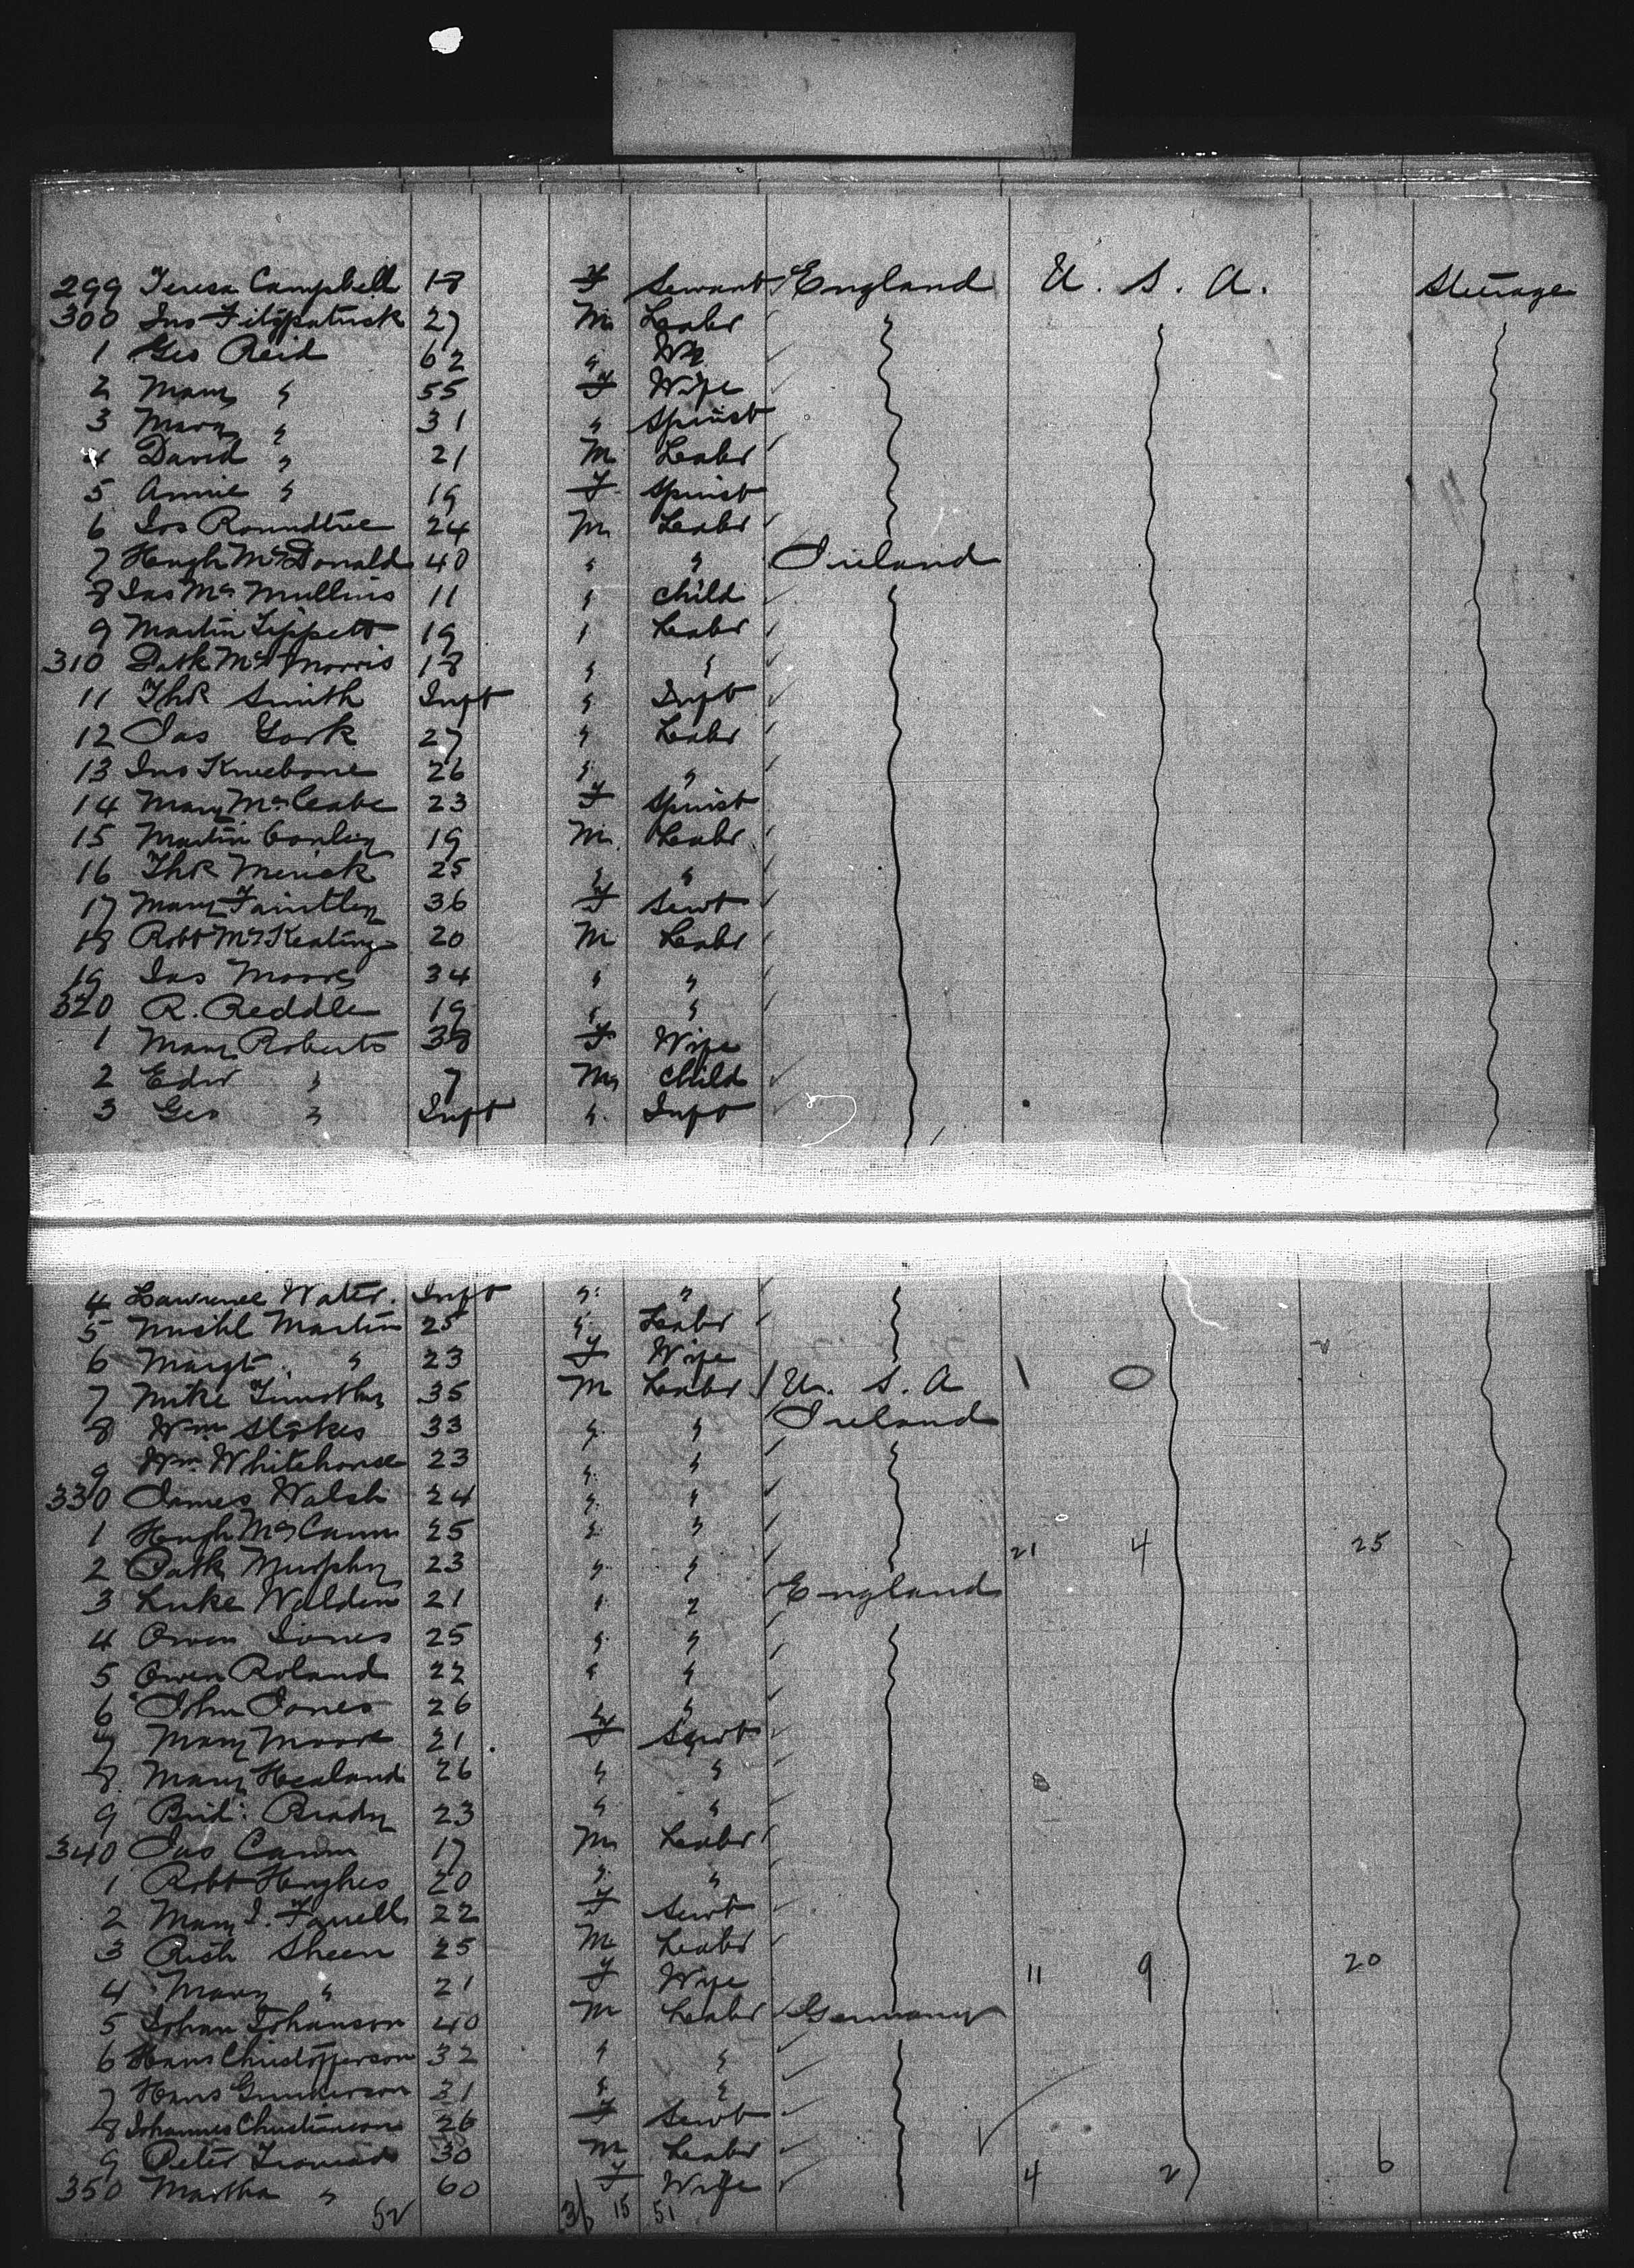 299 Teresa Campbell 18 F Servant England U. S. A. Steerage
300 Jno Fitzpatrick 27 M Labr
1 Geo Reid 62 "
2 Mary " 55 F Wife
3 Mary " 31 " Spinst
4 David " 21 M Labr
5 Annie " 19 F Spinst
6 Jos Roundtree 24 M Labr
7 Hugh McDonald 40 " " Ireland
8 Jas McMullins 11 " Child
9 Martin Tippett 19 " Labr
310 Patk McMorris 18 " "
11 Thk Smith Inft " Inft
12 Jas York 27 " Labr
13 Jno Kneebone 26 " "
14 Mary McCabe 23 F Spinst
15 Martin Conley 19 M Labr
16 Thk Merick 25 " "
17 Mary 36 F Servt
18 Robt McKeating 20 M Labr
19 Jas Moore 34 " "
320 R. Reddle 19 " "
1 Mary Roberts 38 F Wife
2 Edw " 7 M Child
3 Geo " Inft " Inft
4 Lawrence Water. Inft " "
5 Michl Martin 25 " Labr
6 Margt " 23 F Wife
7 Mike Timothy 35 M Labr U. S. A 1 0
8 Wm Stokes 33 " " Ireland
9 Wm. Whitehouse 23 " "
330 James Walsh 24 " "
1 Hugh McCann 25 " "
2 Patk Murphy 23 " " 21 4 25
3 Luke Walden 21 " " England
4 Owen Jones 25 " "
5 Owen Roland 22 " "
6 John Jones 26 " "
7 Mary Moore 21 F Servt
8 Mary Healand 26 " "
9 Brid. Brady 23 " "
340 Jas Cann 17 M Labr
1 Robt Hughes 20 " "
2 Mary J. Farrell 22 F Servt
3 Rich Sheen 25 M Labr
4 Mary " 21 F Wife 11 9 20
5 Johan Johanson 40 M Labr Germany
6 Hans Christofferson 32 " "
7 Hans Gunnerson 31 " "
8 Johannes Christianson 26 F Servt
9 Peter 30 M Labr
350 Martha " 60 F Wife 4 2 6
52 36 15 51